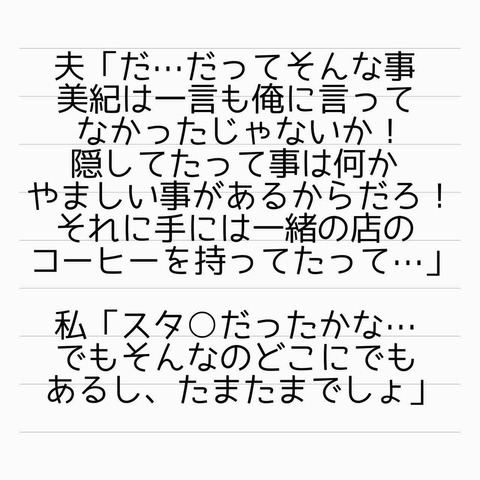 夫「だ…だってそんな事
美紀は一言も俺に言って
なかったじゃないか！
隠してたって事は何か
やましい事があるからだろ！
それに手には一緒の店の
コーヒーを持ってたって…」
私「スタ○だったかな…
でもそんなのどこにでも
あるし、たまたまでしょ」